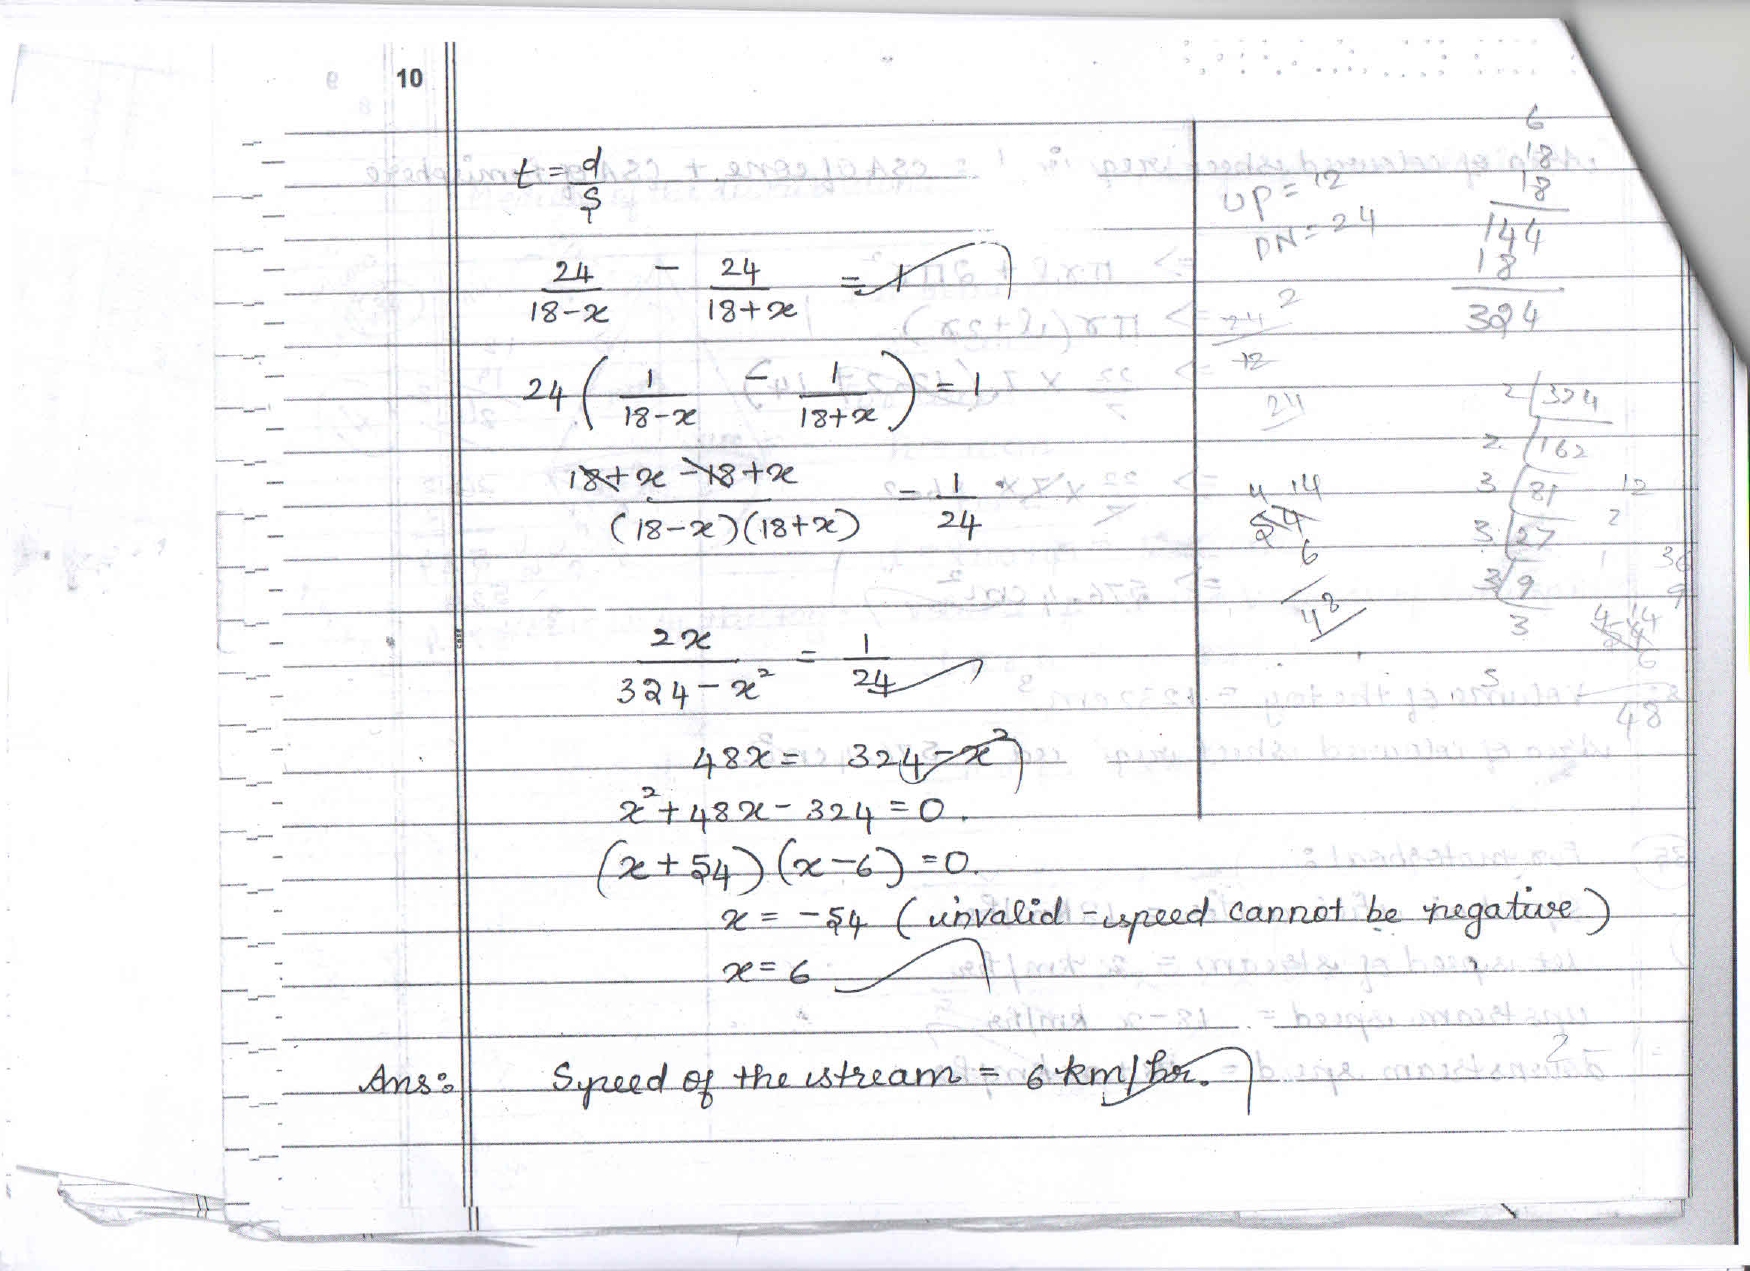 10
t = d/s
24/(18-x) - 24/(18+x) = 1
24 ( 1/(18-x) - 1/(18+x) ) = 1
(18+x - 18+x)/((18-x)(18+x)) = 1/24
2x/(324-x²) = 1/24
48x = 324-x²
x² + 48x - 324 = 0.
(x+54) (x-6) = 0.
x = -54 (invalid - speed cannot be negative)
x = 6
Ans: Speed of the stream = 6 km/hr.
UP = 12
DN = 24
2
24
12
24
4 14
54
6
48
6
18
18
144
18
324
2 324
2 162
3 81
3 27
3 9
3
12
2
36
9
4 14
54
6
48